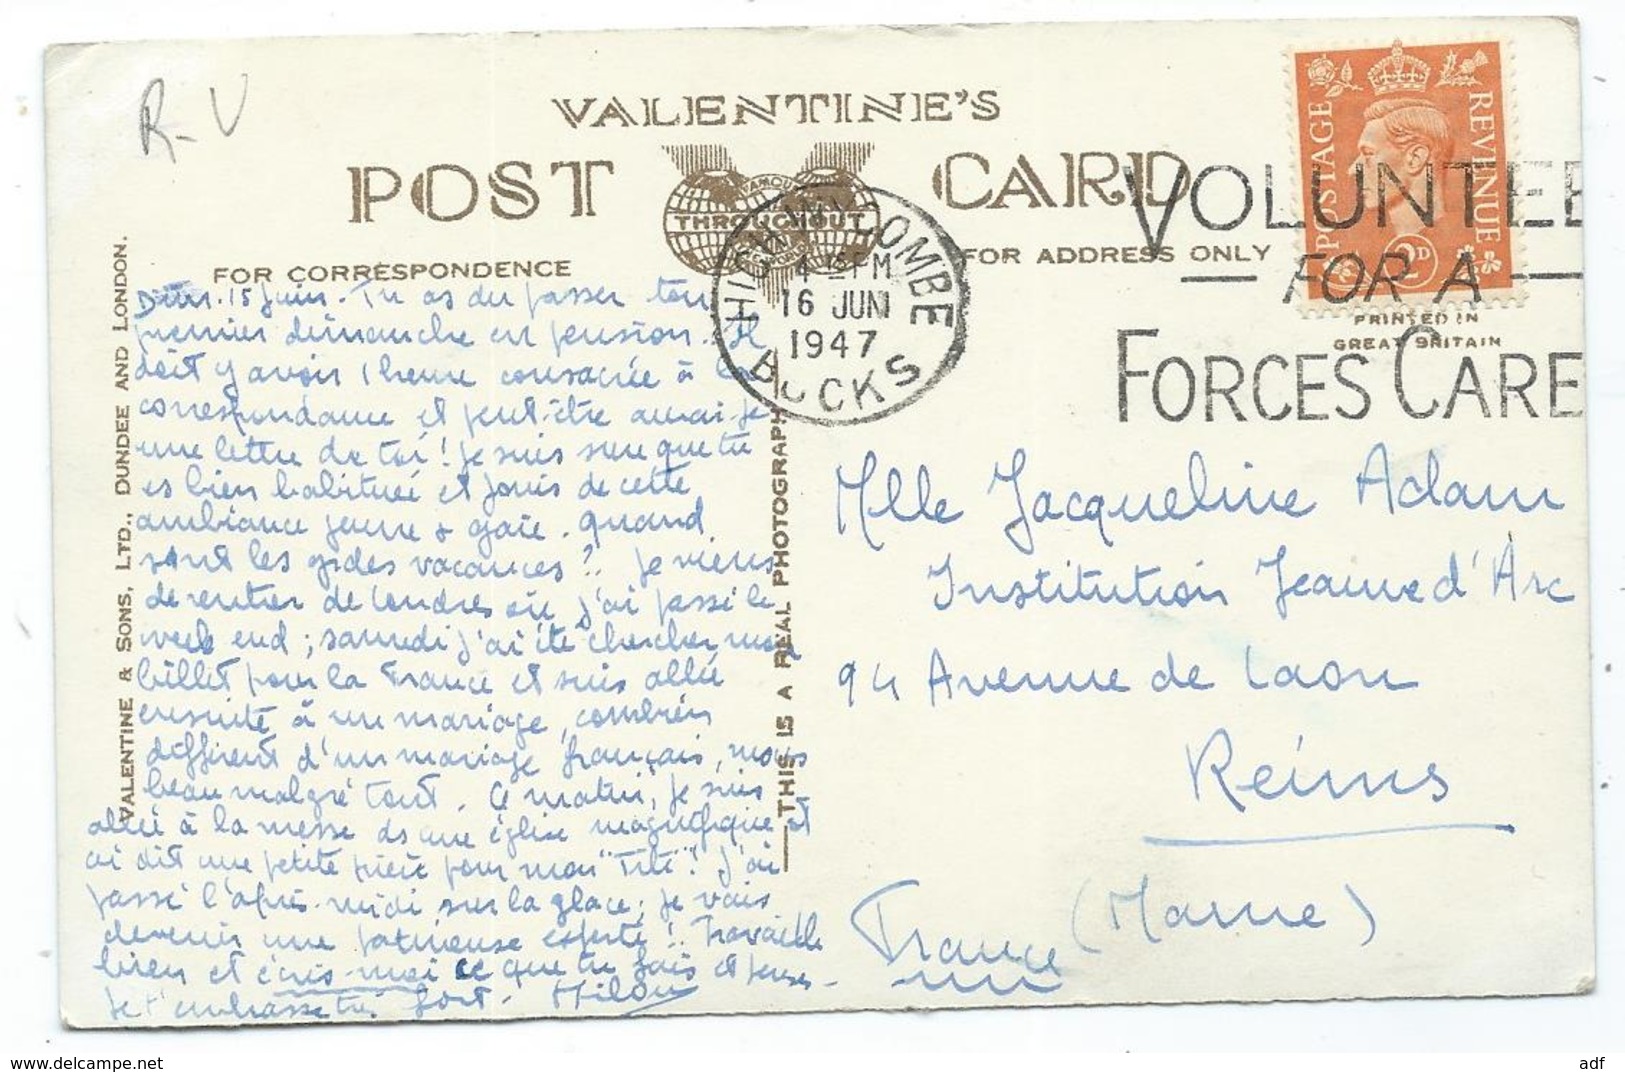 R-V
VALENTINE'S
POST CARD
FAMOUS
THROUGHOUT
THE WORLD
FOR CORRESPONDENCE
FOR ADDRESS ONLY
POSTAGE REVENUE
2D
PRINTED IN
GREAT BRITAIN
HIGH WYCOMBE
4 15 PM
16 JUN
1947
BUCKS
VOLUNTEE
FOR A
FORCES CARE
VALENTINE & SONS, LTD., DUNDEE AND LONDON.
THIS IS A REAL PHOTOGRAPH
Dim. 15 Juin. Tu as du passer ton
premier dimanche en pension. Il
doit y avoir 1 heure consacrée à la
correspondance et peut-être aurai-je
une lettre de toi! Je suis sure que tu
es bien habituée et jouis de cette
ambiance jeune & gaie. Quand
sont les gdes vacances?. Je viens
de rentrer de Londres où j'ai passé le
week end; samedi j'ai été chercher mon
billet pour la France et suis allée
ensuite à un mariage, combien
différent d'un mariage français, mais
beau malgré tout. Ce matin, je suis
allée à la messe ds une église magnifique et
ai dit une petite prière pour mon "Titi"! J'ai
passé l'après-midi sur la glace; je vais
devenir une patineuse experte! Travaille
bien et écris-moi ce que tu fais et penses.
Je t'embrasse très fort. Milou
Mlle Jacqueline Adam
Institution Jeanne d'Arc
94 Avenue de Laon
Reims
(Marne)
France
adf
www.delcampe.net